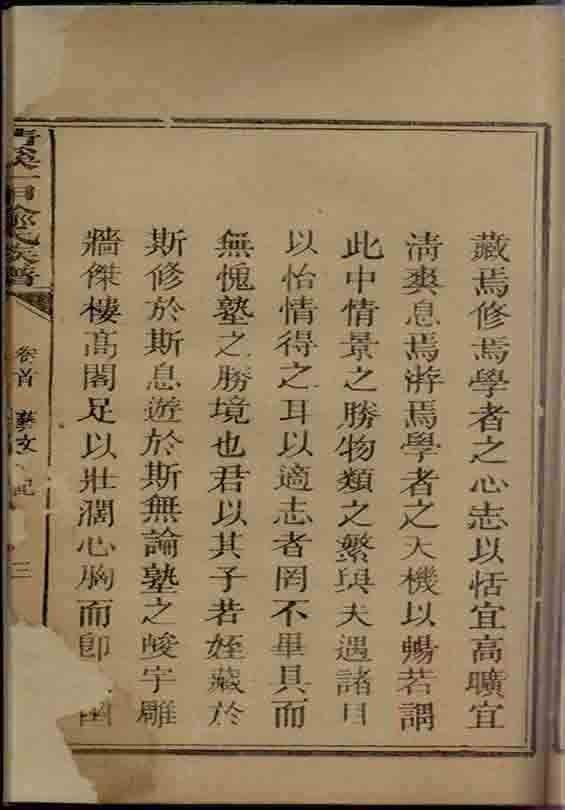 藏焉修焉學者之心志以恬宜高曠宜
淸爽息焉游焉學者之天機以暢若謂
此中情景之勝物類之繁與夫遇諸目
以怡情得之耳以適志者罔不畢具而
無愧塾之勝境也君以其子若姪藏於
斯修於斯息遊於斯無論塾之峻宇雕
牆傑樓高閣足以壯濶心胸而卽
族譜
卷首 藝文 記 三